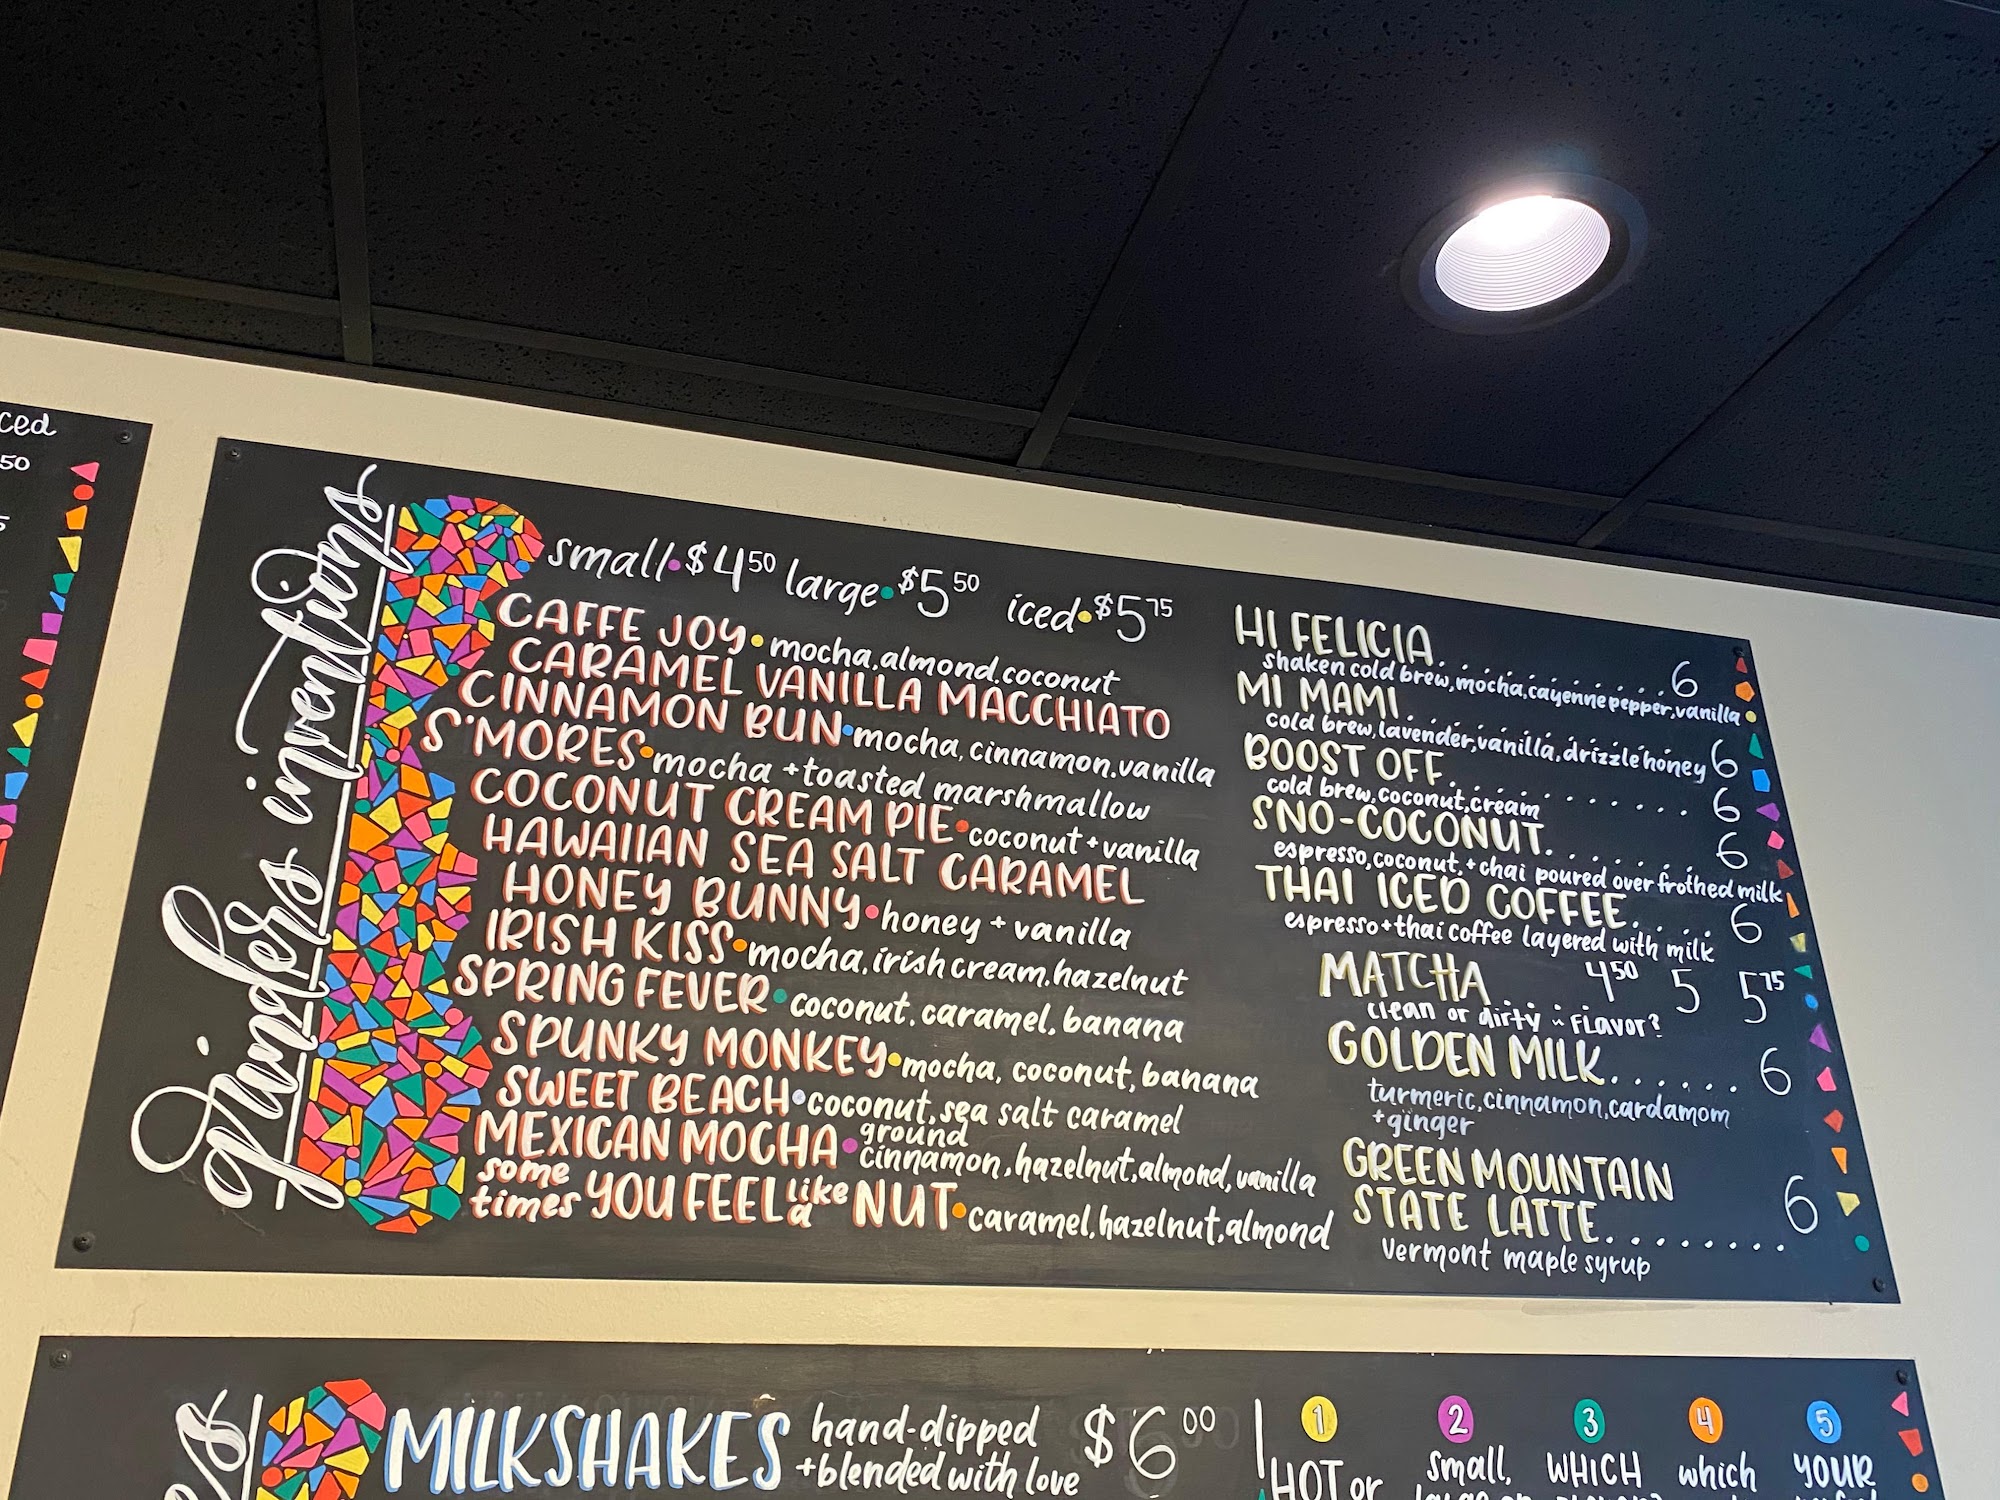 ced
50
5
grinders inventions
small • $4 50 large • $5 50 iced • $5 75
CAFFE JOY • mocha, almond, coconut
CARAMEL VANILLA MACCHIATO
CINNAMON BUN • mocha, cinnamon, vanilla
S'MORES • mocha + toasted marshmallow
COCONUT CREAM PIE • coconut + vanilla
HAWAIIAN SEA SALT CARAMEL
HONEY BUNNY • honey + vanilla
IRISH KISS • mocha, irish cream, hazelnut
SPRING FEVER • coconut, caramel, banana
SPUNKY MONKEY • mocha, coconut, banana
SWEET BEACH • coconut, sea salt caramel
MEXICAN MOCHA • ground cinnamon, hazelnut, almond, vanilla
some times YOU FEEL like a NUT • caramel, hazelnut, almond
HI FELICIA.............6
shaken cold brew, mocha, cayenne pepper, vanilla
MI MAMI.............6
cold brew, lavender, vanilla, drizzle honey
BOOST OFF............6
cold brew, coconut, cream
SNO-COCONUT.......6
espresso, coconut, + chai poured over frothed milk
THAI ICED COFFEE.....6
espresso + thai coffee layered with milk
MATCHA 4 50 5 5 75
clean or dirty ~ FLavor?
GOLDEN MILK.......6
turmeric, cinnamon, cardamom
+ ginger
GREEN MOUNTAIN
STATE LATTE.........6
Vermont maple syrup
MILKSHAKES hand-dipped
+ blended with love $6 00
1 2 3 4 5
HOT or small, WHICH which YOUR